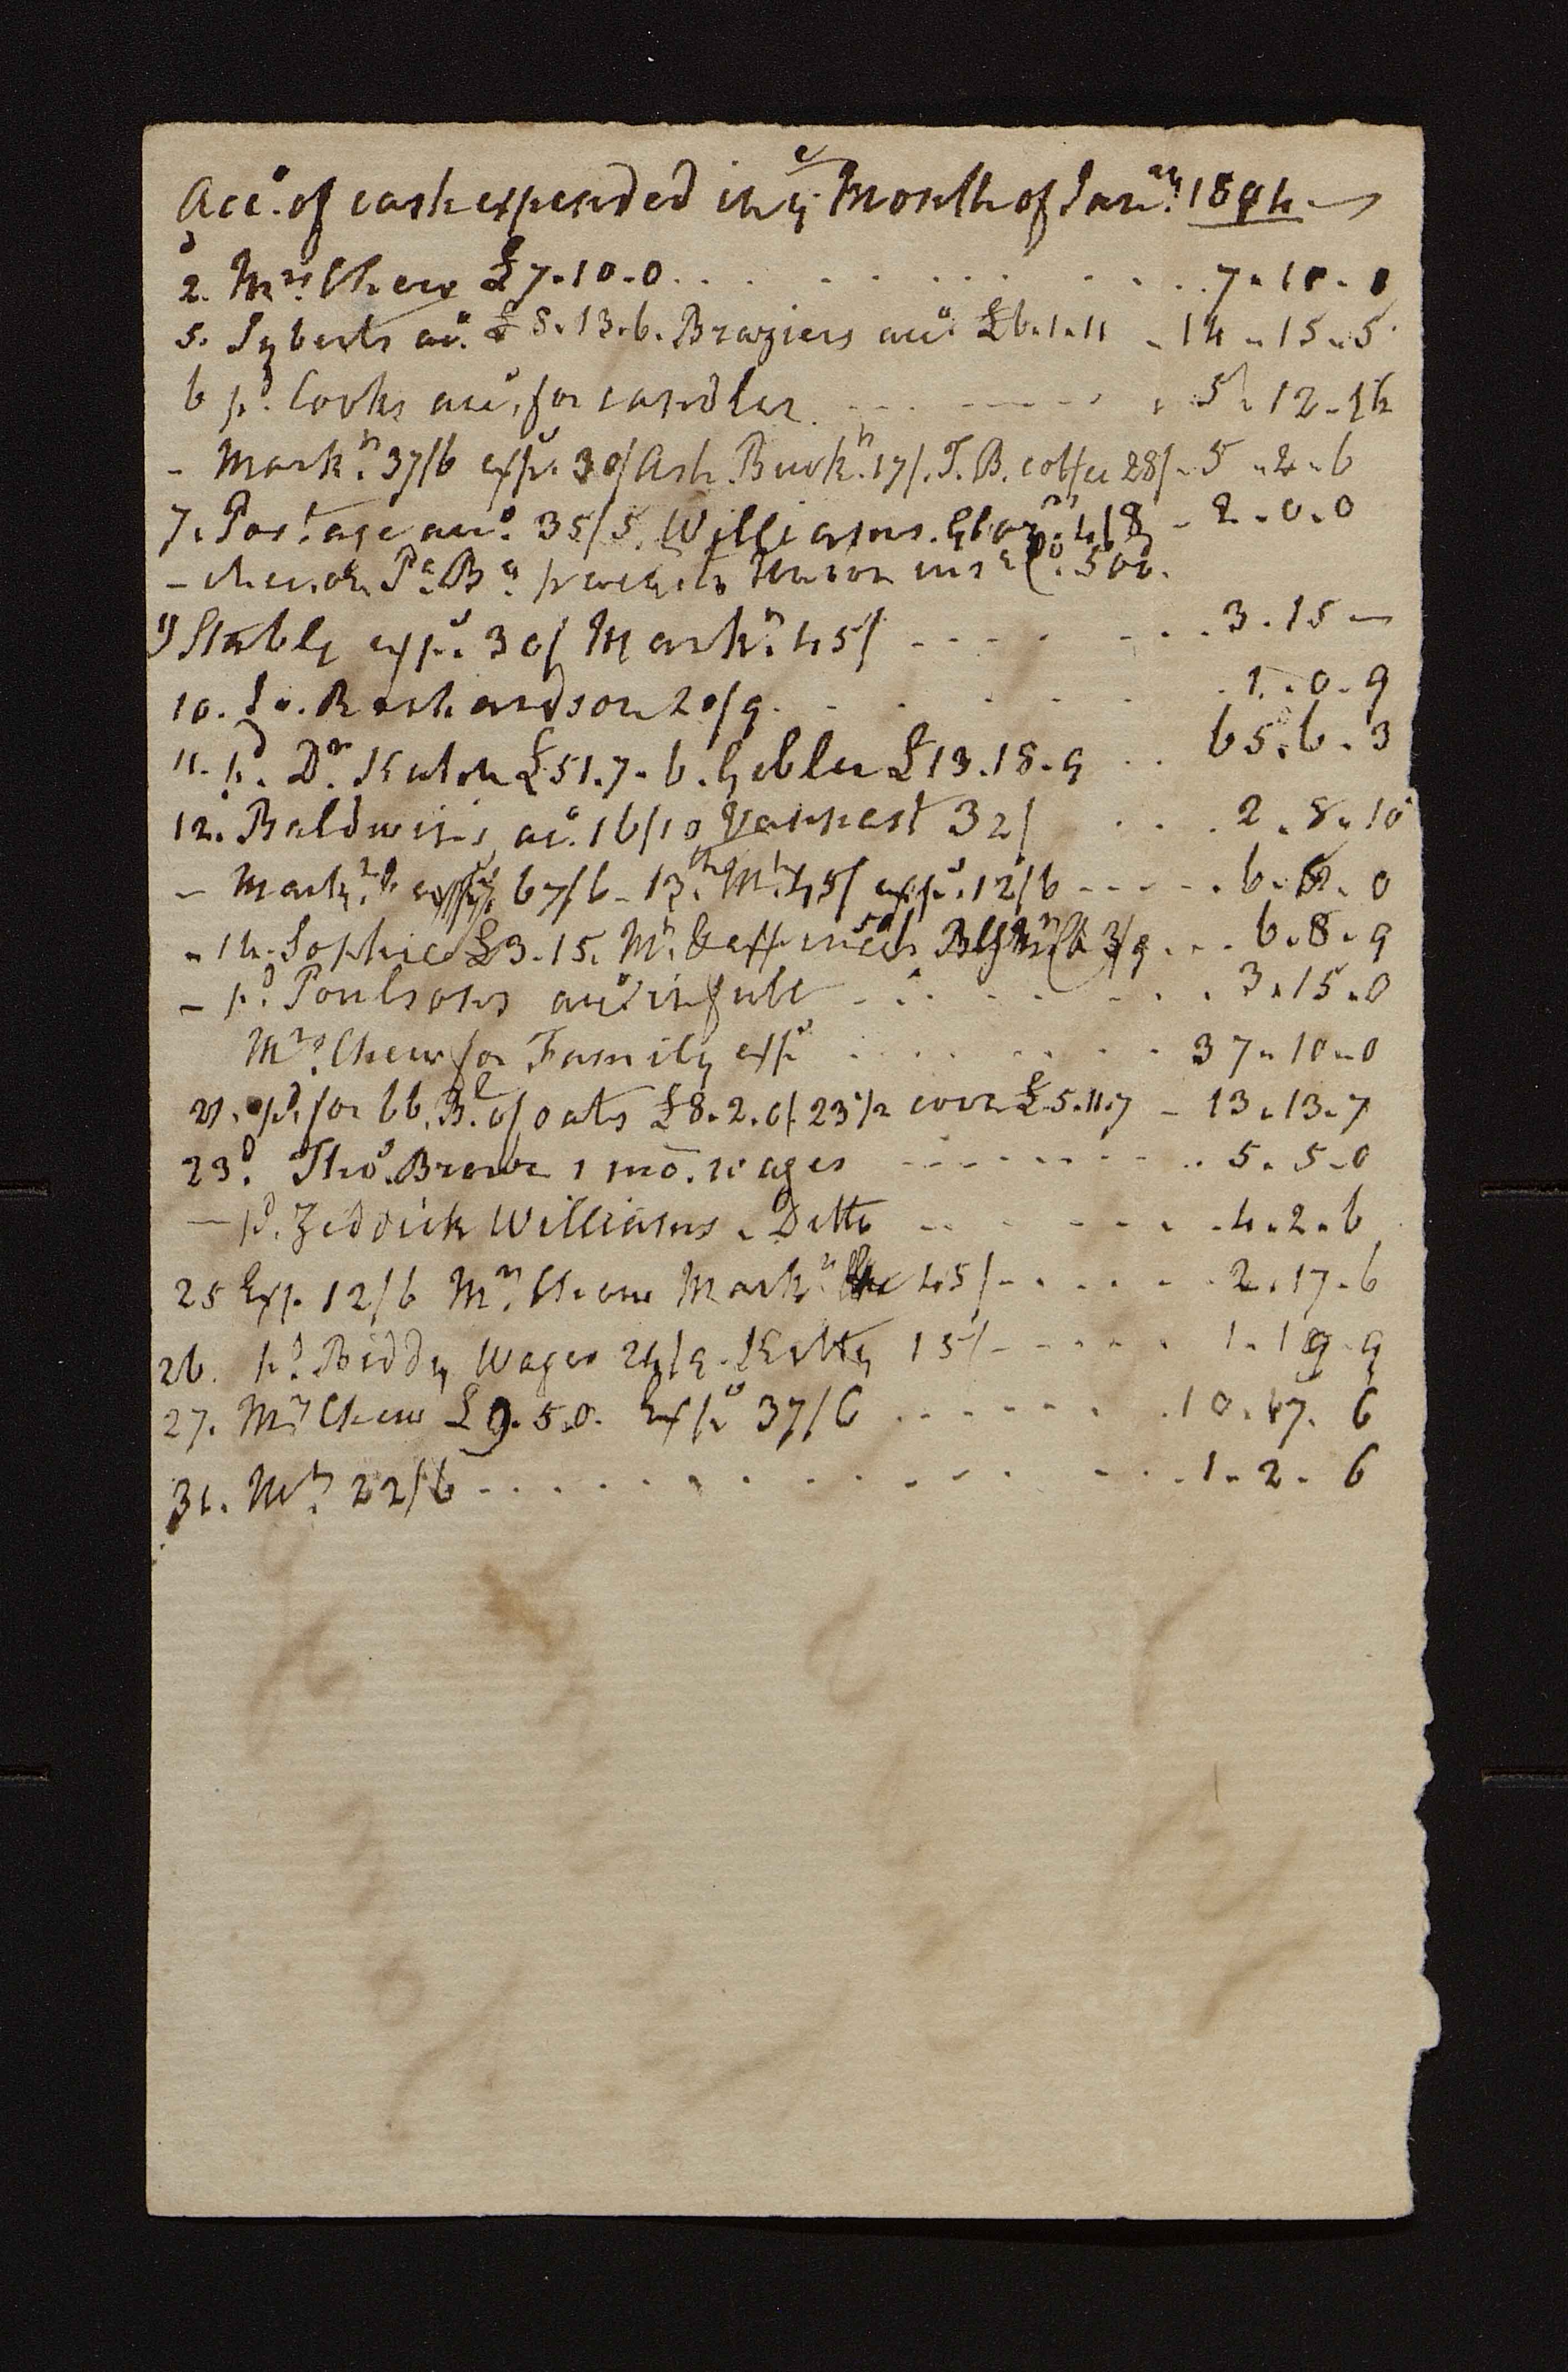 Acc.o of cash expended in ye Month of Janry. 1804
2. Mrs. Chew £7.10.0 7.10.0
5. Syberts acc.o £8.13.6. Braziers acc.o £6.1.11 14.15.5
6 pd. Cooks acc.o for candles 5.12.
- Markn. 37/6 exps. 30/ Ash. Buckn. 17/. T.B. coffee 28/ 5.2.6
7. Postage acc.o 35/5. Williams. 4/8 2.0.0
500.
9 Stable exps. 30/ Markn. 45/ 3.15
10. Richardson 20/9 1.0.9
11. pd. Dr. Kuhn £51.7.6. £13.18.9 65.6.3
12. Baldwins acc.o 16/10 Vannest 32/ 2.8.10
- Markn. 67/6 - 13th. Mn. 45/ exps. 12/6 6. .0
- 14. Sophie £3.15. 6.8.9
- pd. Poulsons acc.t in full 3.15.0
Mrs. Chew for Family exps 37.10.0
21. pd. for 66. Bl. of oats £8.2.0/. 23 1/2 corn £5.11.7 13.13.7
23d. Thos. Brown 1 mo. wages 5.5.0
- pd. Zeddick Williams. Ditto 4.2.6
25 Exp. 12/6 Mrs. Chew Markn. 45/ 2.17.6
26. pd. Biddy Wages 24/9. Kitty 15/ 1.19.9
27. Mrs Chew £9.5.0. Exps 37/6 10.17.6
31. Mn. 22/6 1.2.6